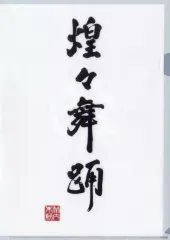 煌々舞踊